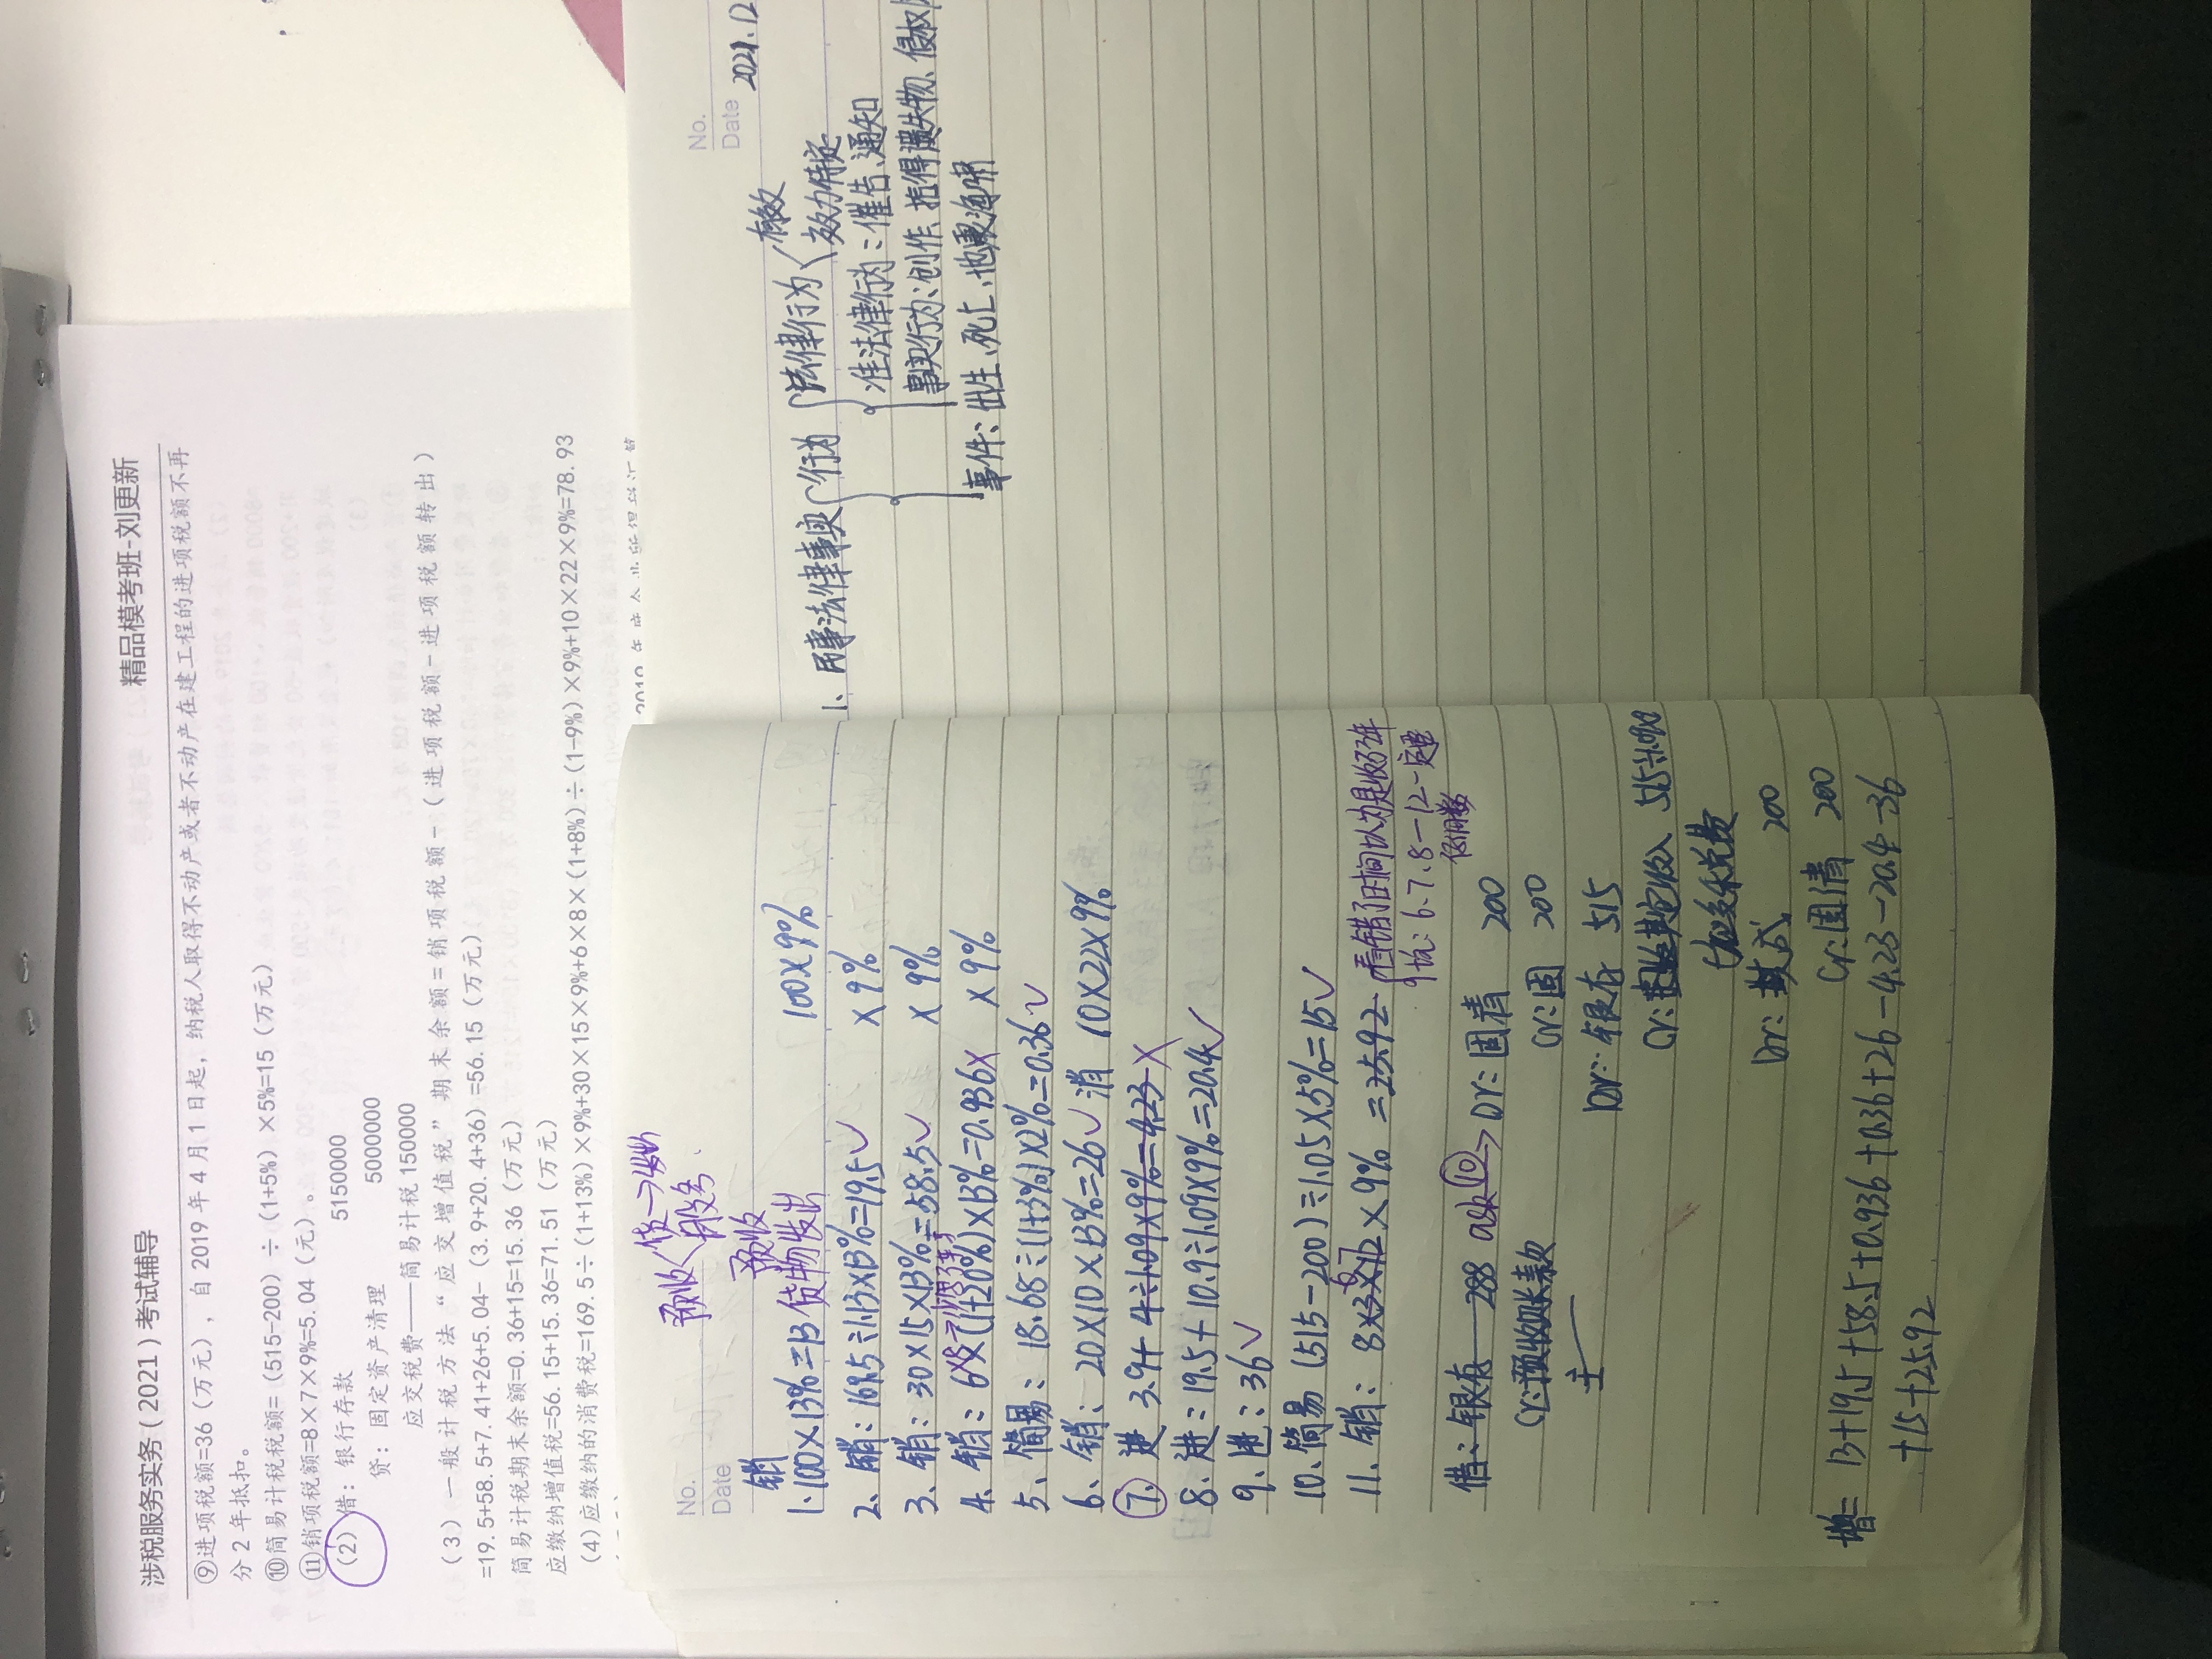 涉税服务实务（2021）考试辅导
精品模考班-刘更新
⑨进项税额=36（万元），自2019年4月1日起，纳税人取得不动产或者不动产在建工程的进项税额不再
分2年抵扣。
⑩简易计税税额=（515-200）÷（1+5%）×5%=15（万元）
⑪销项税额=8×7×9%=5.04（元）。
（2）借：银行存款 5150000
贷：固定资产清理 5000000
应交税费——简易计税 150000
（3）一般计税方法“应交增值税”期末余额=销项税额-（进项税额-进项税额转出）
=19.5+58.5+7.41+26+5.04-（3.9+20.4+36）=56.15（万元）
简易计税期末余额=0.36+15=15.36（万元）
应缴纳增值税=56.15+15.36=71.51（万元）
（4）应缴纳的消费税=169.5÷（1+13%）×9%+30×15×9%+6×8×（1+8%）÷（1-9%）×9%+10×22×9%=78.93
2019年度企业所得税汇算
No.
Date
预收 货→发出
服务
销 预收
1.100×13%=13 货物发出 100×9%
2、销：169.5÷1.13×13%=19.5✓ ×9%
3、销：30×15×13%=58.5✓ ×9%
×8→少乘了
4、销：6×(1+20%)×13%=0.936× ×9%
5、简易：18.68÷(1+3%)×2%=0.36✓
6、销：20×10×13%=26✓ 消 10×22×9%
⑦ 进 3.9+4÷1.09×9%=4.23 ×
8、进：19.5+10.9÷1.09×9%=20.4✓
9、进：36✓
10、简易 (515-200)÷1.05×5%=15✓
6 7
11、销：8×3×12×9% =25.92 看错了时间以为是收了3年
坑：6、7、8—12一定要
借：银存 288 ask⑩→ Dr：固清 200
Cr：预收账款 Cr：固 200
主
Dr：银存 515
Cr：其它收入 515÷1.09
应交税费
Dr：其成 200
Cr：固清 200
增= 13+19.5+58.5+0.936+0.36+26-4.23-20.4-36
+15+25.92
No.
Date 2021.12
1、民事法律事实 行为 法律行为 有效
效力待定
准法律行为：催告、通知
事实行为：创作、拾得遗失物、侵权
事件：出生、死亡、地震海啸